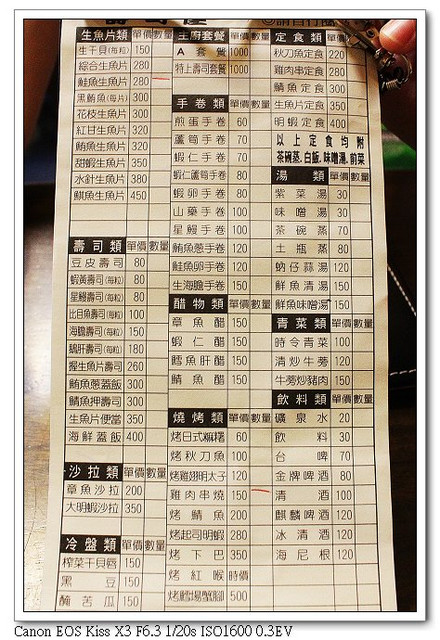 生魚片類 單價 數量
生干貝(每粒) 150
綜合生魚片 280
鮭魚生魚片 280
黑鮪魚(每片) 300
花枝生魚片 300
紅甘生魚片 320
鮪魚生魚片 320
甜蝦生魚片 350
水針生魚片 380
旗魚生魚片 450
壽司類 單價 數量
豆皮壽司 80
蝦黃壽司(每粒) 80
星鰻壽司(每粒) 80
比目魚壽司(每粒) 100
海膽壽司(每粒) 150
鵝肝壽司(每粒) 180
握生魚壽司 260
鮪魚蔥蓋飯 300
鯖魚押壽司 300
生魚片便當 350
海鮮蓋飯 400
沙拉類 單價 數量
章魚沙拉 200
大明蝦沙拉 350
冷盤類 單價 數量
榨菜干貝唇 150
黑豆 150
醃苦瓜 150
主廚套餐 單價 數量
A套餐 1000
特上壽司套餐 1000
手卷類 單價 數量
煎蛋手卷 60
蘆筍手卷 70
蝦仁手卷 70
蝦仁蘆筍手卷 80
蝦卵手卷 80
山藥手卷 100
星鰻手卷 100
鮪魚蔥手卷 120
鮭魚卵手卷 120
生海膽手卷 150
醋物類 單價 數量
章魚醋 150
蝦仁醋 150
鱈魚肝醋 150
鯖魚醋 150
燒烤類 單價 數量
烤日式麻糬 60
烤秋刀魚 100
烤雞翅明太子 120
雞肉串燒 150
烤鯖魚 200
烤起司明蝦 280
烤下巴 350
烤紅喉 時價
烤鱈場蟹腳 500
定食類 單價 數量
秋刀魚定食 220
雞肉串定食 280
鯖魚定食 300
生魚片定食 350
明蝦定食 400
以上定食均附
茶碗蒸.白飯.味噌湯.前菜
湯類 單價 數量
紫菜湯 30
味噌湯 30
茶碗蒸 70
土瓶蒸 80
蚋仔蒜湯 120
鮮魚清湯 150
鮮魚味噌湯 150
青菜類 單價 數量
時令青菜 100
清炒牛蒡 120
牛蒡炒豬肉 150
飲料類 單價 數量
礦泉水 20
飲料 30
台啤 70
金牌啤酒 80
清酒 100
麒麟啤酒 120
冰清酒 120
海尼根 120
Canon EOS Kiss X3 F6.3 1/20s ISO1600 0.3EV